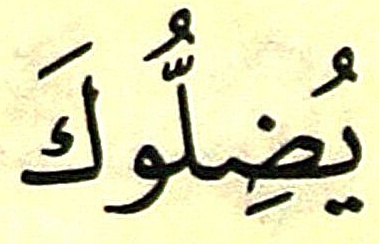 يُضِلُّوكَ